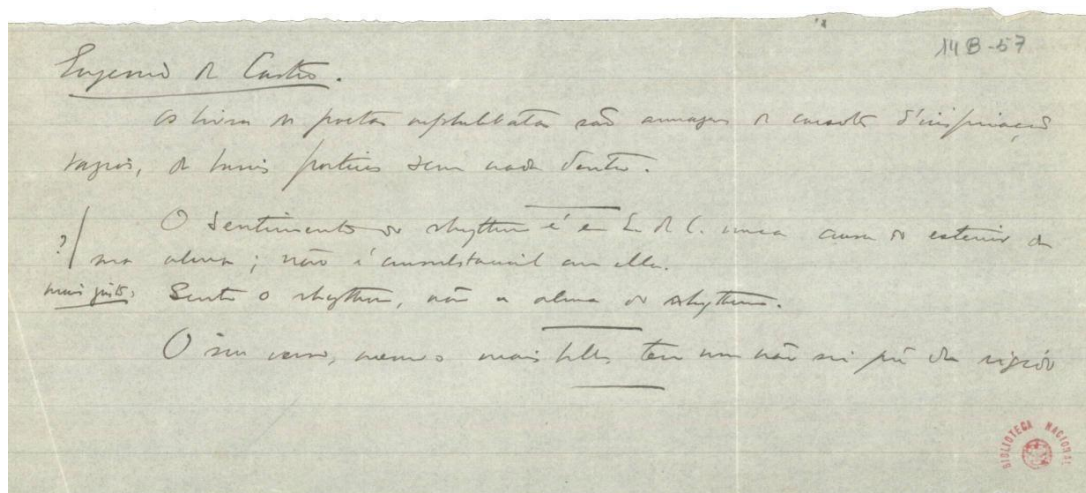 14B-57
Eugenio de Castro.
Os livros de poetas são de d'inspiração
vagos, de sem nada dentro.
O sentimento do rhythmo é em E. de C. uma cousa do exterior da
?/ sua alma; não é consubstancial com ella.
mais justo: Sente o rhythmo, não a alma do rhythmo.
O seu verso, mesmo o mais bello, tem um não sei quê de rigido
BIBLIOTECA NACIONAL